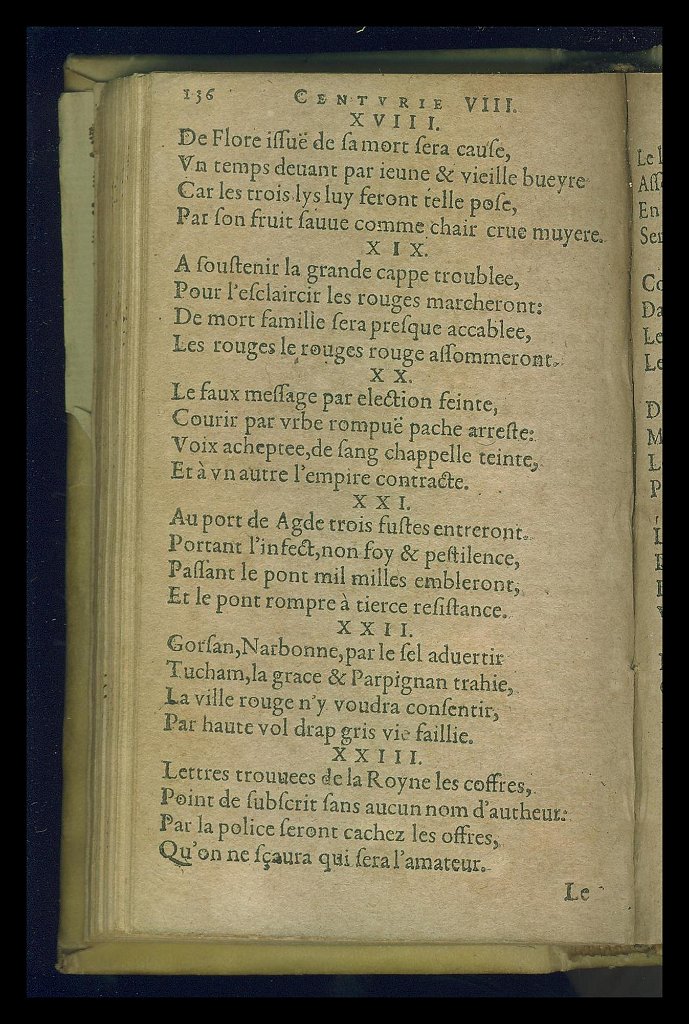 136 CENTVRIE VIII.
XVIII.
De Flore iſſuë de ſa mort ſera cauſe,
Vn temps deuant par ieune & vieille bueyre
Car les trois lys luy feront telle poſe,
Par ſon fruit ſauue comme chair crue muyere.
XIX.
A ſouſtenir la grande cappe troublee,
Pour l'eſclaircir les rouges marcheront:
De mort famille ſera preſque accablee,
Les rouges le rouges rouge aſſommeront.
XX.
Le faux meſſage par election feinte,
Courir par vrbe rompuë pache arreſte:
Voix acheptee, de ſang chappelle teinte,
Et à vn autre l'empire contracte.
XXI.
Au port de Agde trois fuſtes entreront.
Portant l'infect, non foy & peſtilence,
Paſſant le pont mil milles embleront,
Et le pont rompre à tierce reſiſtance.
XXII.
Gorſan, Narbonne, par le ſel aduertir
Tucham, la grace & Parpignan trahie,
La ville rouge n'y voudra conſentir,
Par haute vol drap gris vie faillie.
XXIII.
Lettres trouuees de la Royne les coffres,
Point de ſubſcrit ſans aucun nom d'autheur:
Par la police ſeront cachez les offres,
Qu'on ne ſçaura qui ſera l'amateur.
Le
Le
Aſſ
En
Ser
Co
Da
Le
Le
D
M
L
P